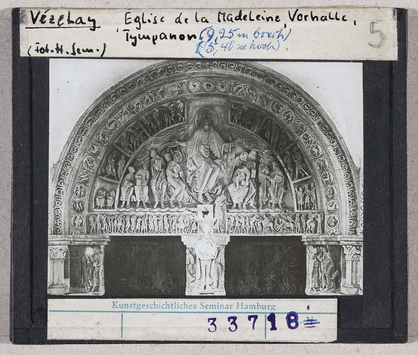 Vézelay Eglise de la Madeleine, Vorhalle,
Tympanon (9,25 m breit)
(5,48 m hoch)
(Fot. H. Sem.)
5
Kunstgeschichtliches Seminar Hamburg
33718